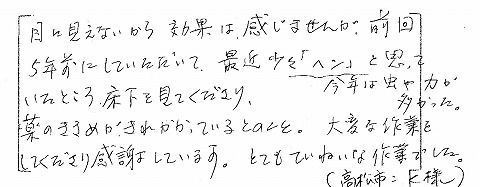 目に見えないから 効果は、感じませんが、前回
5年前にしていただいて、最近 少々「ヘン」と思って
いたところ、床下を見てくださり、 今年は虫や力が
多かった。
薬のききめがきれかかっているとのこと。 大変な作業を
してくださり感謝しています。 とてもていねいな作業でした。
(高松市:K様)